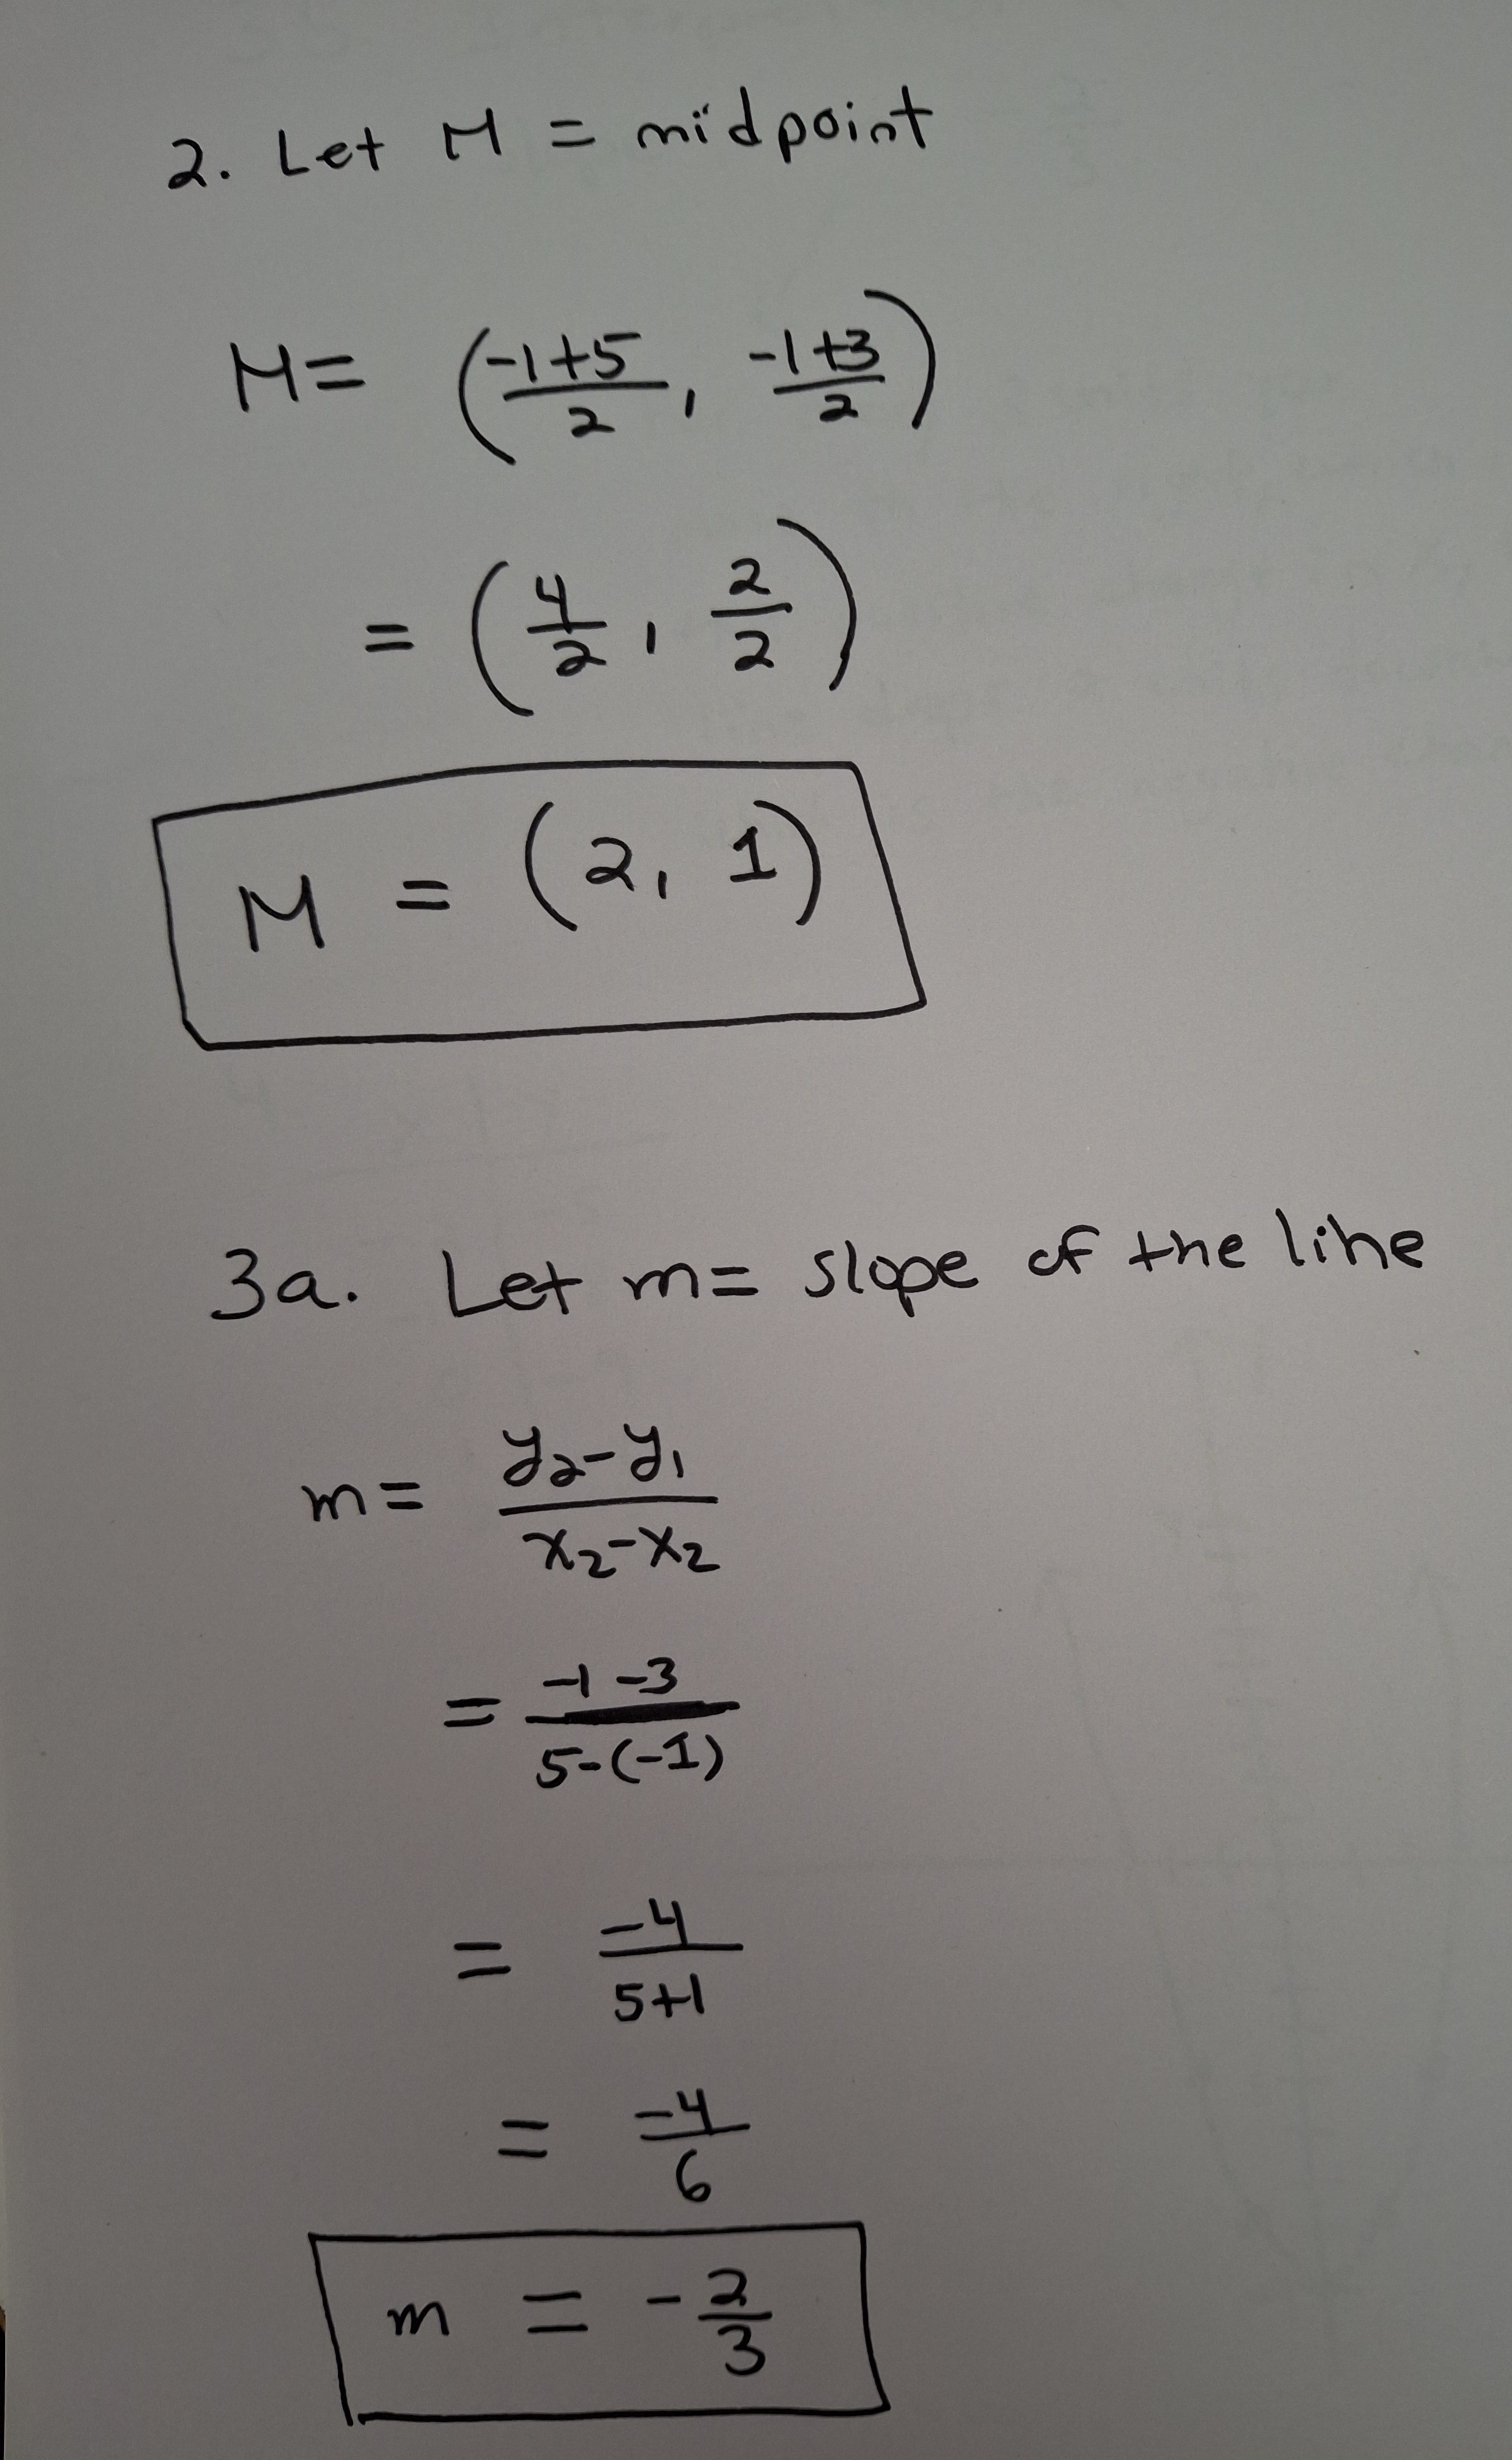 2. Let M = midpoint
M = (-1+5/2, -1+3/2)
= (4/2, 2/2)
M = (2, 1)
3a. Let m = slope of the line
m = y₂-y₁/x₂-x₂
= -1-3/5-(-1)
= -4/5+1
= -4/6
m = -2/3